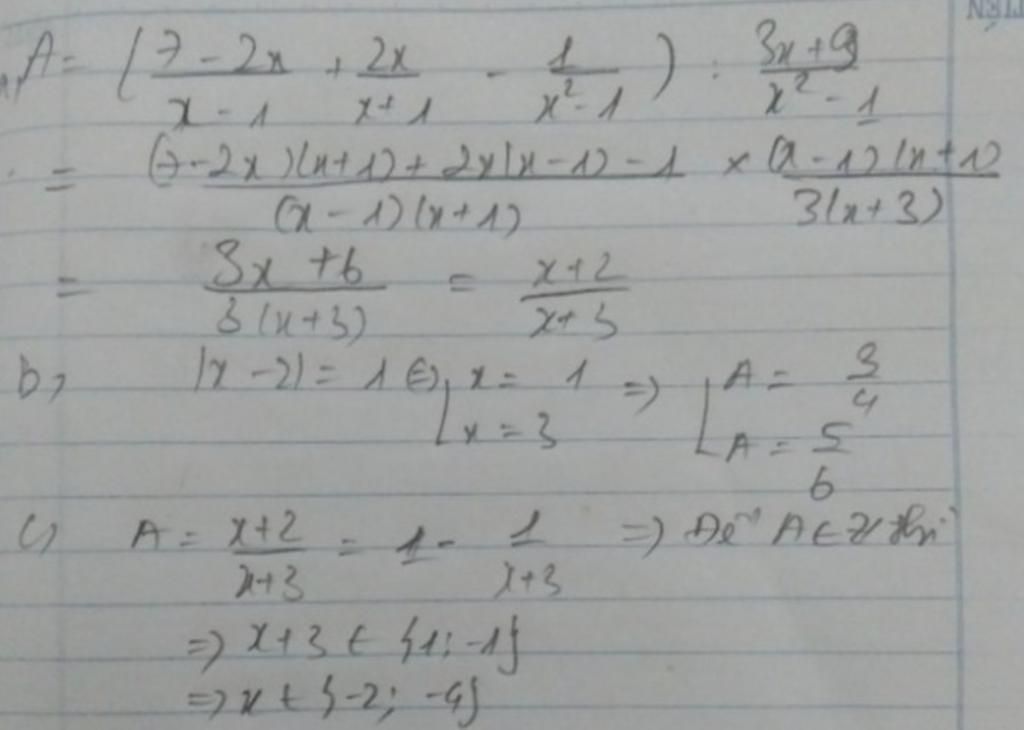 a, A = ( (7 - 2x)/(x - 1) + 2x/(x + 1) - 1/(x² - 1) ) : (3x + 9)/(x² - 1)
= ((7 - 2x)(x + 1) + 2x(x - 1) - 1)/((x - 1)(x + 1)) × ((x - 1)(x + 1))/(3(x + 3))
= (3x + 6)/(3(x + 3)) = (x + 2)/(x + 3)
b, |x - 2| = 1 ⇔ [ x = 1 ; x = 3 ⇒ [ A = 3/4 ; A = 5/6
c, A = (x + 2)/(x + 3) = 1 - 1/(x + 3) ⇒ Để A ∈ Z thì
⇒ x + 3 ∈ {1; -1}
⇒ x ∈ {-2; -4}